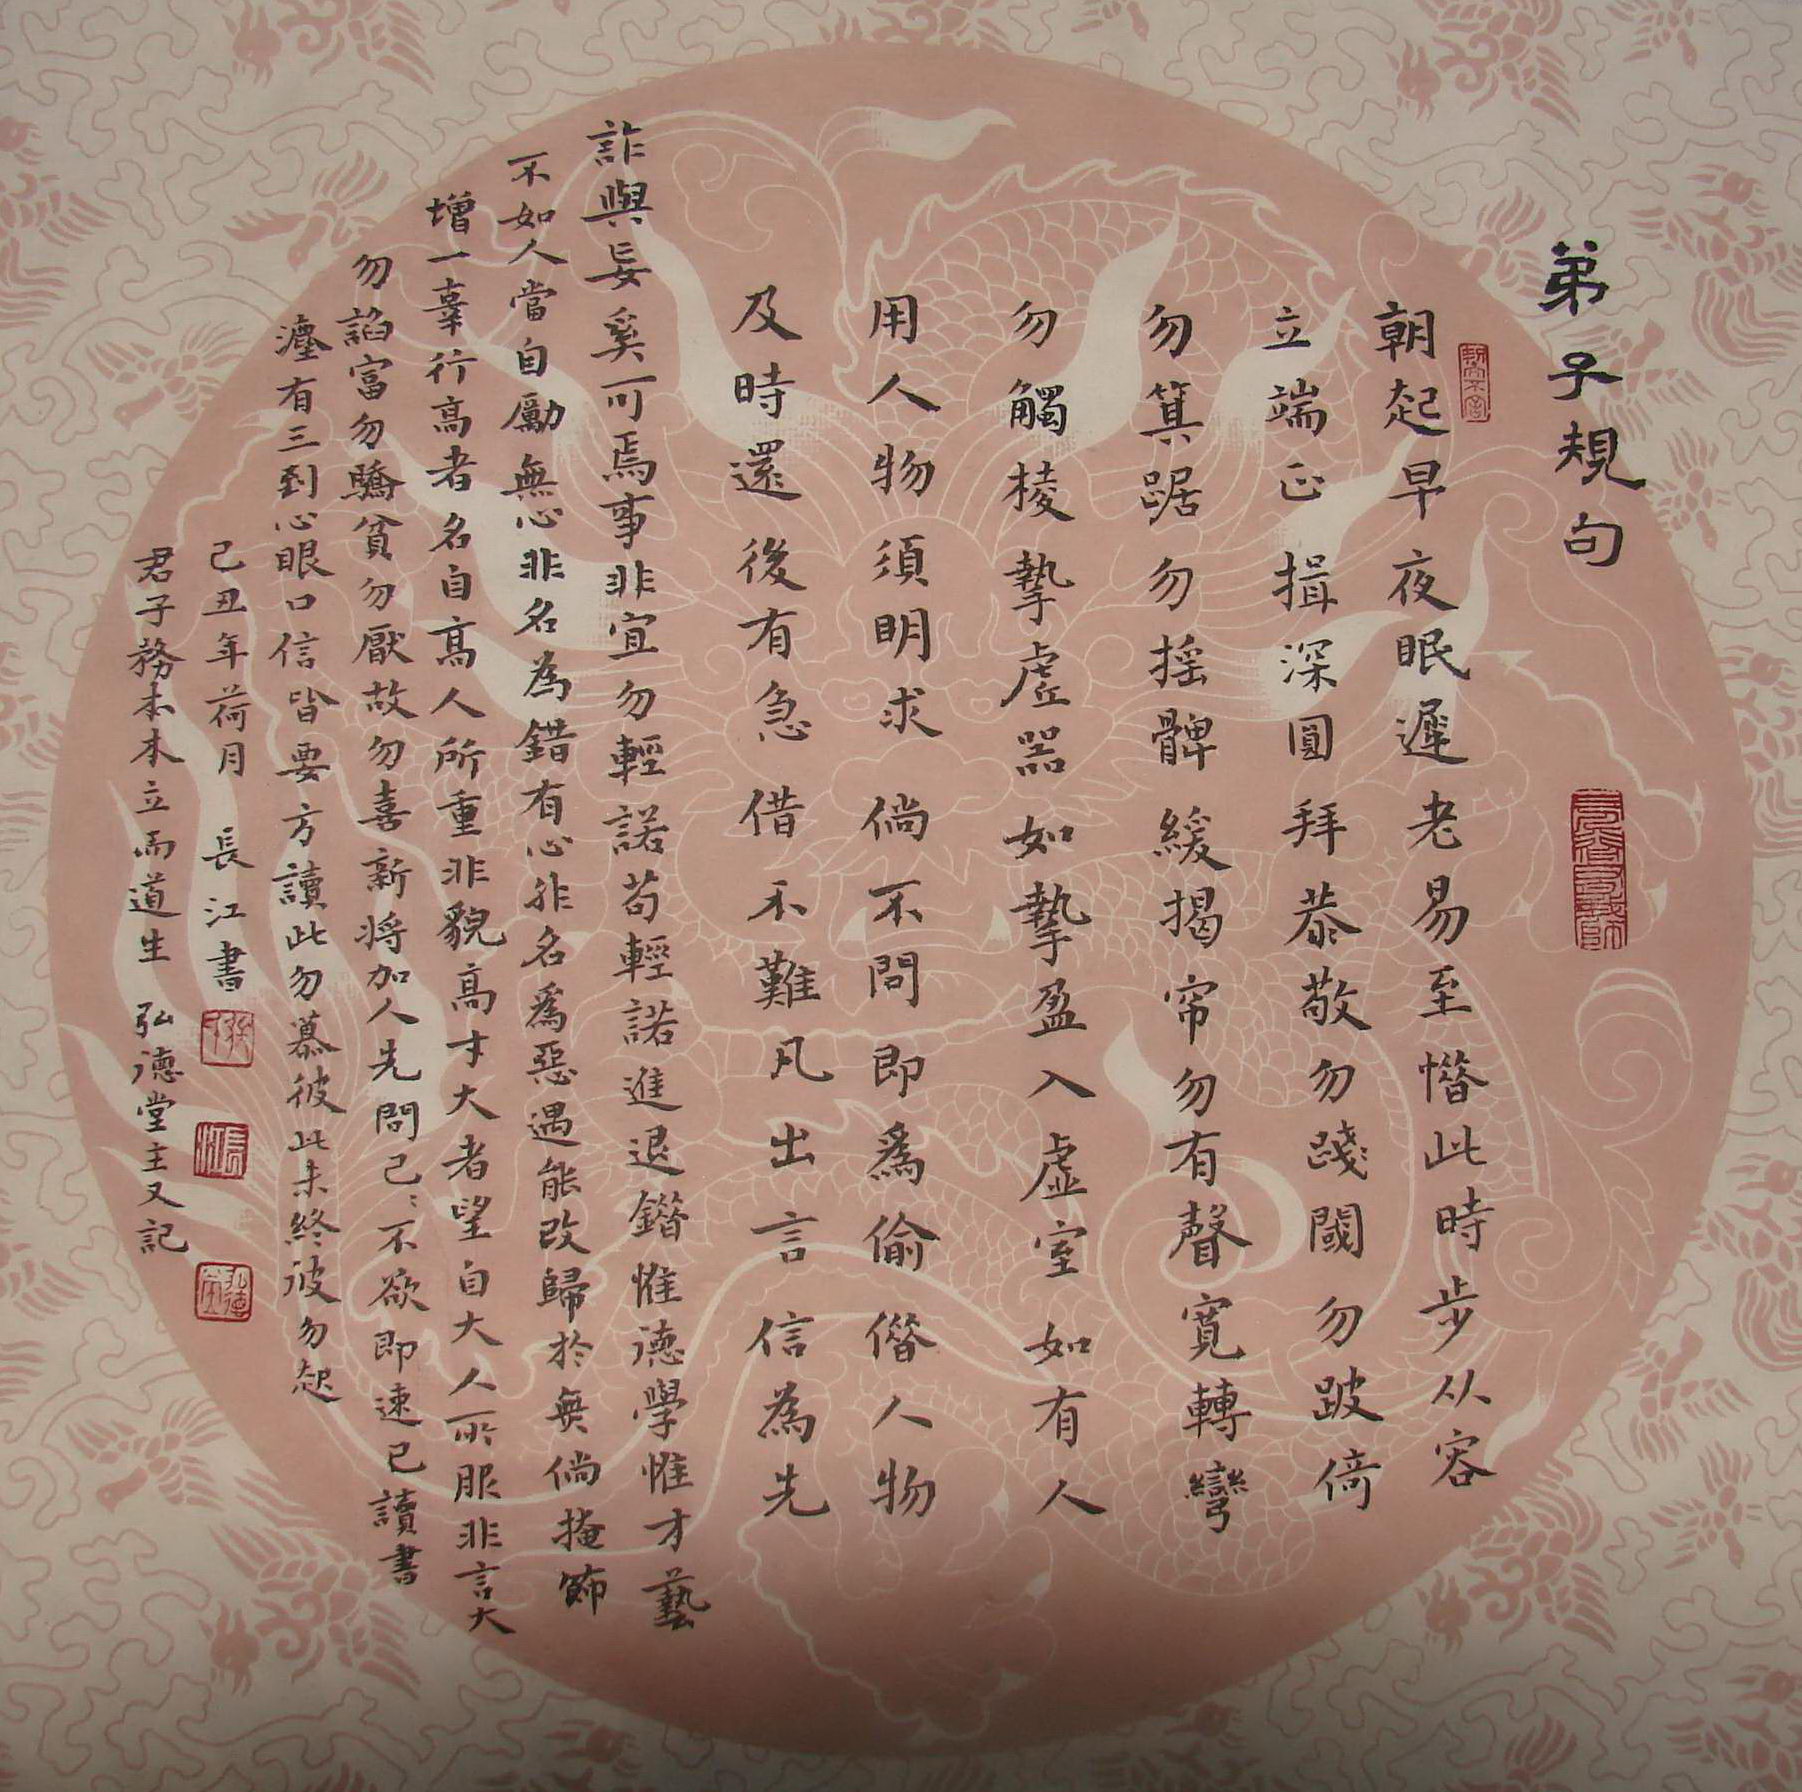 弟子規句
朝起早夜眠遲老易至惜此時步从容
立端正揖深圓拜恭敬勿踐閾勿跛倚
勿箕踞勿搖髀緩揭帘勿有聲寬轉彎
勿觸棱執虛器如執盈入虛室如有人
用人物須明求倘不問即爲偷借人物
及時還後有急借不難凡出言信為先
詐與妄奚可焉事非宜勿輕諾苟輕諾進退錯惟德學惟才藝
不如人當自勵無心非名為錯有心非名爲惡過能改歸於無倘掩飾
增一辜行高者名自高人所重非貌高才大者望自大人所服非言大
勿諂富勿驕貧勿厭故勿喜新將加人先問己〻不欲即速已讀書
法有三到心眼口信皆要方讀此勿慕彼此未終彼勿起
己丑年荷月 長江書
君子務本本立而道生 弘德堂主又記